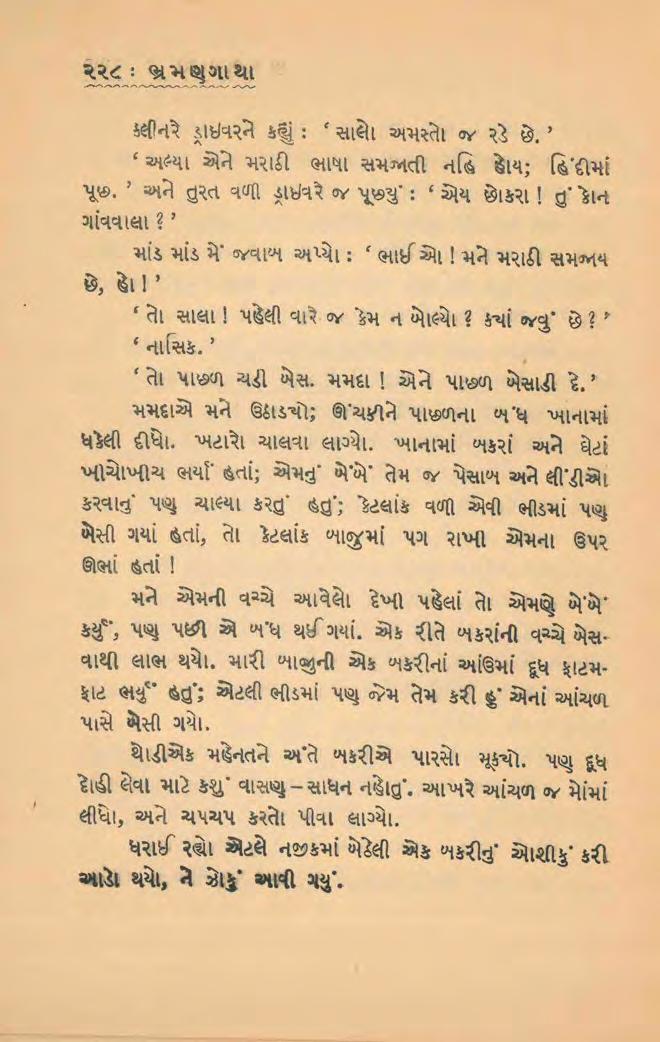 ૨૨૮ : ભ્રમણગાથા
ક્લીનરે ડ્રાઇવરને કહ્યું : ‘ સાલો અમસ્તો જ રડે છે. ’
‘ અલ્યા એને મરાઠી ભાષા સમજાતી નહિ હોય; હિંદીમાં
પૂછ. ’ અને તુરત વળી ડ્રાઇવરે જ પૂછ્યું : ‘ એય છોકરા ! તું કોન
ગાંવવાલા ? ’
માંડ માંડ મેં જવાબ અપ્યો : ‘ ભાઈ ઓ ! મને મરાઠી સમજાય
છે, હો ! ’
‘ તો સાલા ! પહેલી વારે જ કેમ ન બોલ્યો ? ક્યાં જવું છે ? ’
‘ નાસિક. ’
‘ તો પાછળ ચડી બેસ. મમદા ! એને પાછળ બેસાડી દે. ’
મમદાએ મને ઉઠાડ્યો; ઊંચકીને પાછળના બંધ ખાનામાં
ધકેલી દીધો. ખટારો ચાલવા લાગ્યો. ખાનામાં બકરાં અને ઘેટાં
ખીચોખીચ ભર્યાં હતાં; એમનું બેંબેં તેમ જ પેસાબ અને લીંડીઓ
કરવાનું પણ ચાલ્યા કરતું હતું; કેટલાંક વળી એવી ભીડમાં પણ
બેસી ગયાં હતાં, તો કેટલાંક બાજુમાં પગ રાખી એમના ઉપર
ઊભાં હતાં !
મને એમની વચ્ચે આવેલો દેખી પહેલાં તો એમણે બેંબેં
કર્યું, પણ પછી એ બંધ થઈ ગયાં. એક રીતે બકરાંની વચ્ચે બેસ-
વાથી લાભ થયો. મારી બાજુની એક બકરીનાં આંઉમાં દૂધ ફાટમ-
ફાટ ભર્યું હતું; એટલી ભીડમાં પણ જેમ તેમ કરી હું એનાં આંચળ
પાસે બેસી ગયો.
થોડીએક મહેનતને અંતે બકરીએ પારસો મૂક્યો. પણ દૂધ
દોહી લેવા માટે કશું વાસણ – સાધન નહોતું. આખરે આંચળ જ મોંમાં
લીધો, અને ચપચપ કરતો પીવા લાગ્યો.
ધરાઈ રહ્યો એટલે નજીકમાં બેઠેલી એક બકરીનું ઓશીકું કરી
આડો થયો, ને ઝોકું આવી ગયું.